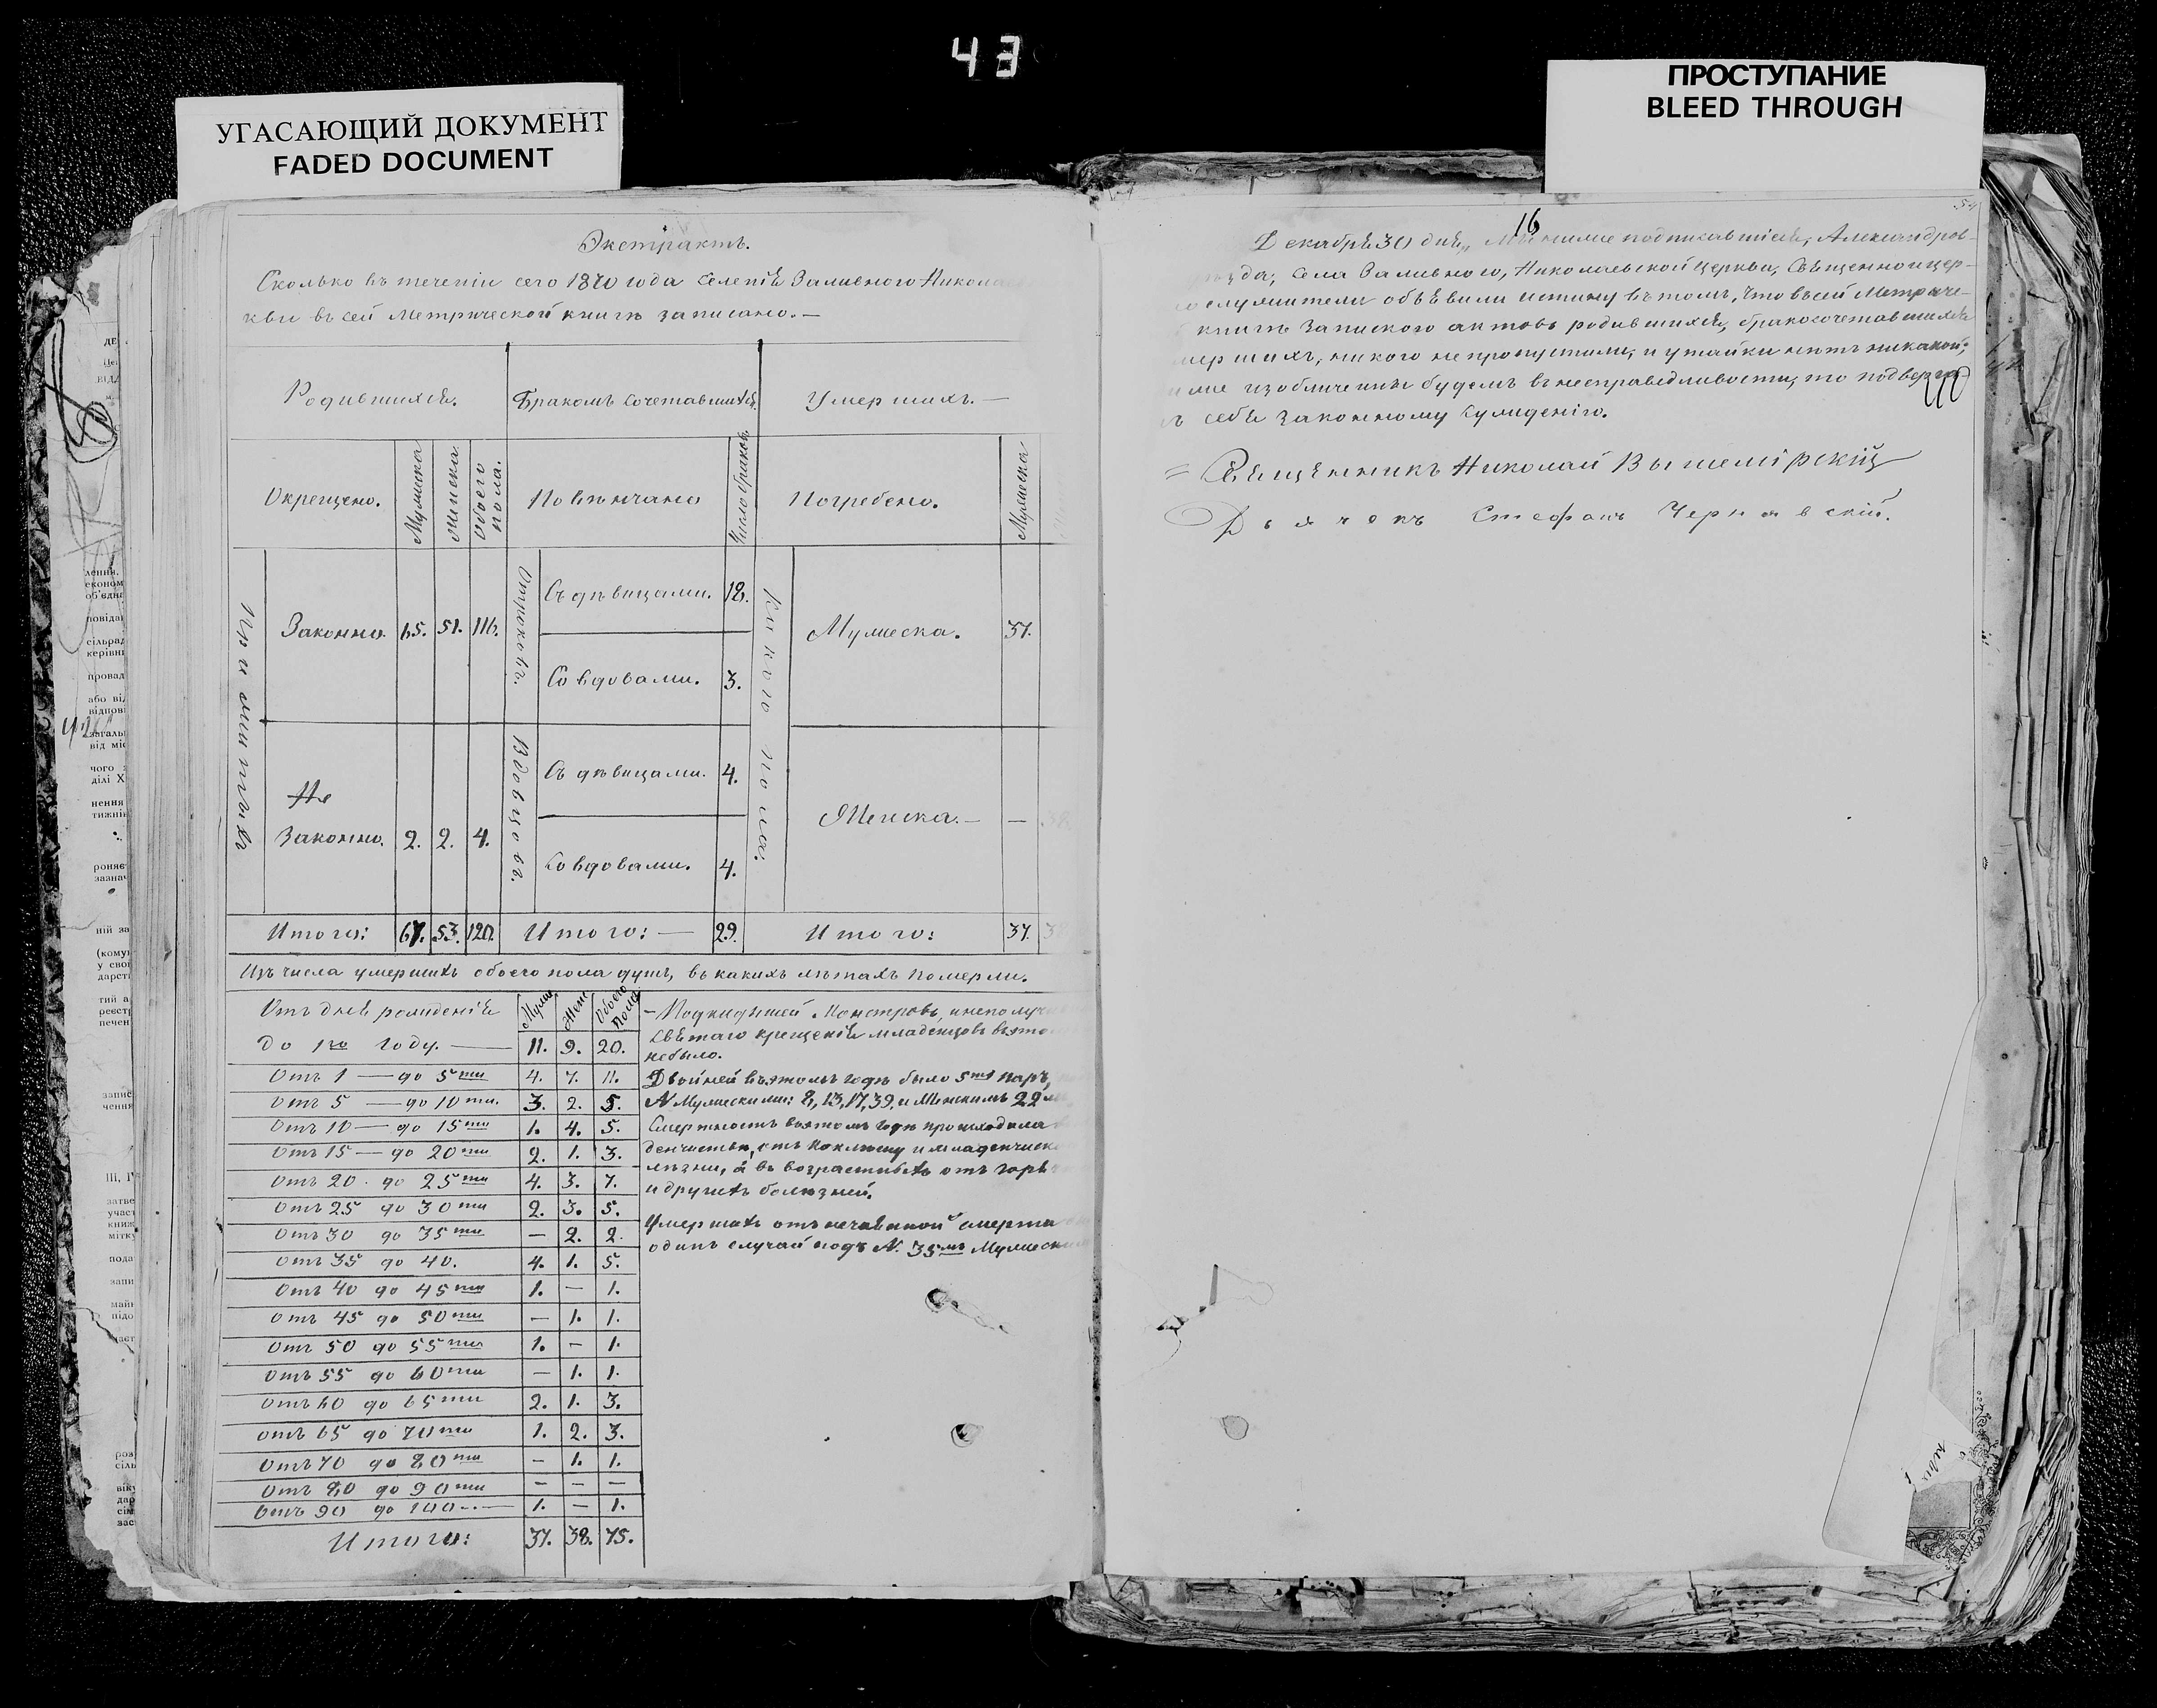 43
УГАСАЮЩИЙ ДОКУМЕНТ
FADED DOCUMENT
ПРОСТУПАНИЕ
BLEED THROUGH
Экстрактъ.
Сколько въ теченіи сего 1870 года Селенія Заливного Никола
кви въ сей Метрической книгѣ записано. —
Родившихся. Бракомъ сочетавшихся. Умершихъ. —
Окрещено. Мужеска Женска Обоего пола. Повѣнчано Число браковъ. Погребено. Мужеска
Законно. 65. 51. 116. Отроковъ. Съ дѣвицами. 18. Мужеска. 37.
Со вдовами. 3.
Не
Законно. 2. 2. 4. Вдовцовъ. Съ дѣвицами. 4. Женска. — —
Со вдовами. 4.
Итого: 67. 53. 120. Итого: — 29. Итого: 37. 38
Изъ числа умершихъ обоего пола душъ, въ какихъ лѣтахъ померли.
Отъ днѣ рожденіе Муже Жен Обоего пола
До 1го году. — 11. 9. 20.
Отъ 1 — до 5ти 4. 7. 11.
Отъ 5 — до 10ти. 3. 2. 5.
Отъ 10 — до 15ти 1. 4. 5.
Отъ 15 — до 20ти 2. 1. 3.
Отъ 20 до 25ти 4. 3. 7.
Отъ 25 до 30ти 2. 3. 5.
Отъ 30 до 35ти — 2. 2.
Отъ 35 до 40. 4. 1. 5.
Отъ 40 до 45ти 1. — 1.
Отъ 45 до 50ти — 1. 1.
Отъ 50 до 55ти 1. — 1.
Отъ 55 до 60ти — 1. 1.
Отъ 60 до 65ти 2. 1. 3.
Отъ 65 до 70ти 1. 2. 3.
Отъ 70 до 80ти — 1. 1.
Отъ 80 до 90ти — — —
Отъ 90 до 100 — 1. — 1.
Итого: 37. 38. 75.
— Подкидышей, Монстровъ, и неполуч
Свѣтаго крещеніе младенцовъ въ это
небыло.
Двойней въ этомъ годѣ было 5ть паръ,
№ Мужескими: 8, 13, 17, 39, и Женскимъ 22
Смертность въ этомъ годѣ происходила
и другихъ болѣзней.
Умершихъ отъ нечаянной смерти
одинъ случай подъ №. 35мъ Мужеск
16
54
Декабрѣ 30 днѣ, Мы нижеподписавшіеся, Александров-
да, Села Заливного, Николаевской Церкви, Священно и цер-
служители объѣвили истину въ томъ, что въ сей Метриче-
книгѣ Запискою актовъ родившихся, бракосочетавшихся
мершихъ, никого не пропустили, и утайки нѣтъ никакой;
изобличенны будемъ въ несправедливости, то подверга-
себѣ законному сужденію.
= Свѣщенникъ Николай Вышемірскій
Дьячокъ Стефанъ Чернявскій.